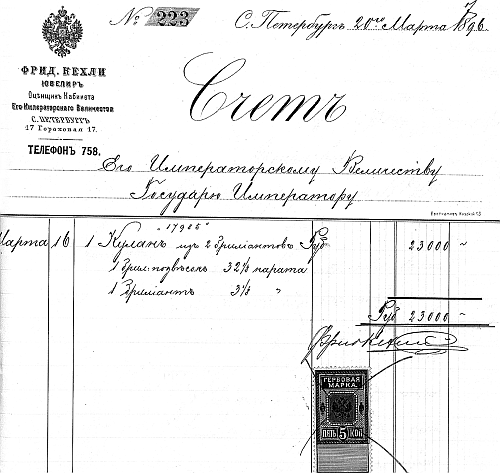 № 223
С. Петербургъ 20го Марта 1896
7
ФРИД. КЕХЛИ
ЮВЕЛИР
Оценщик Кабинета
Его Императорского Величества
С. ПЕТЕРБУРГЪ
17 Гороховая 17.
ТЕЛЕФОНЪ 758.
Счетъ
Его Императорскому Величеству
Государю Императору
"17905"
Марта 16 1 Кулонъ изъ 2 брилiантовъ Руб 23000 "
1 брил: подвѣсокъ 32½ карата
1 Брилiантъ "
Руб 23000 "
ГЕРБОВАЯ
МАРКА.
ПЯТЬ 5 КОП.